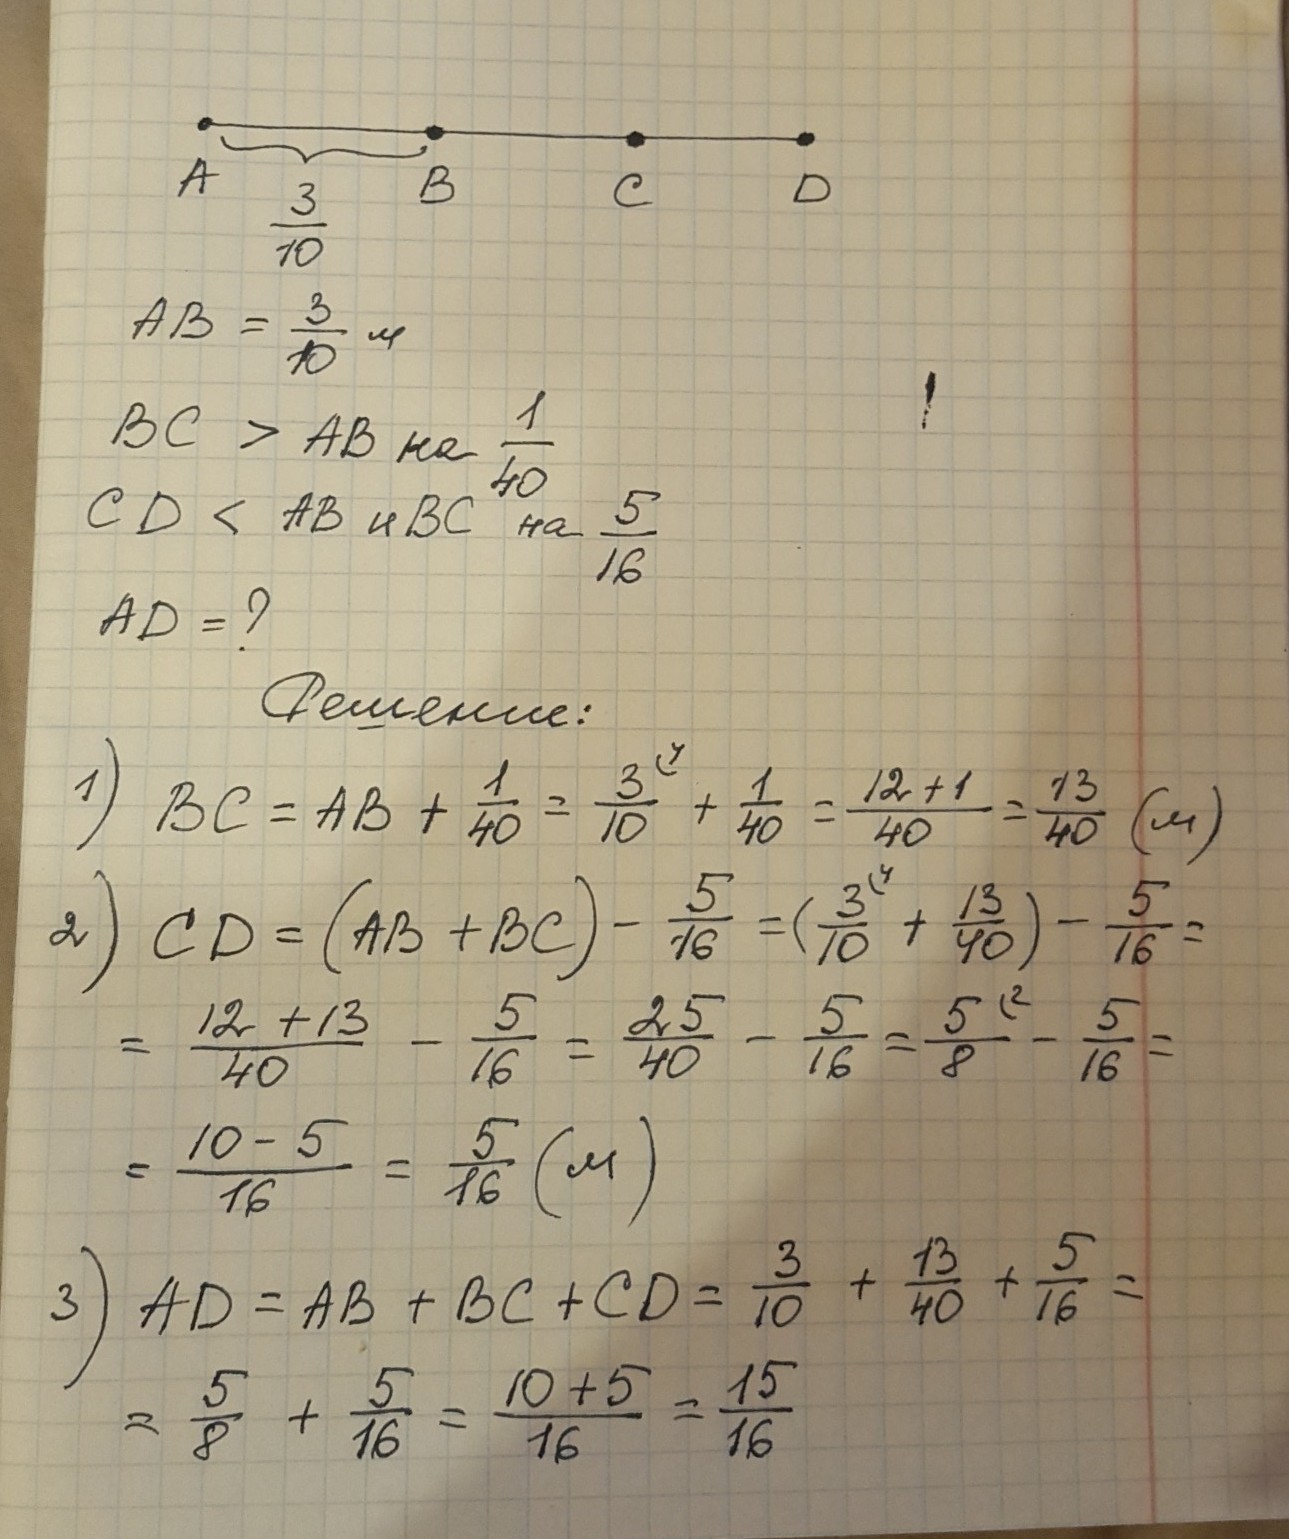 A B C D
3/10
AB = 3/10 м
BC > AB на 1/40
CD < AB и BC на 5/16
AD = ?
Решение:
1) BC = AB + 1/40 = 3/10 (4 + 1/40 = 12+1/40 = 13/40 (м)
2) CD = (AB + BC) - 5/16 = (3/10 (4 + 13/40) - 5/16 =
= 12+13/40 - 5/16 = 25/40 - 5/16 = 5/8 (2 - 5/16 =
= 10-5/16 = 5/16 (м)
3) AD = AB + BC + CD = 3/10 + 13/40 + 5/16 =
= 5/8 + 5/16 = 10+5/16 = 15/16